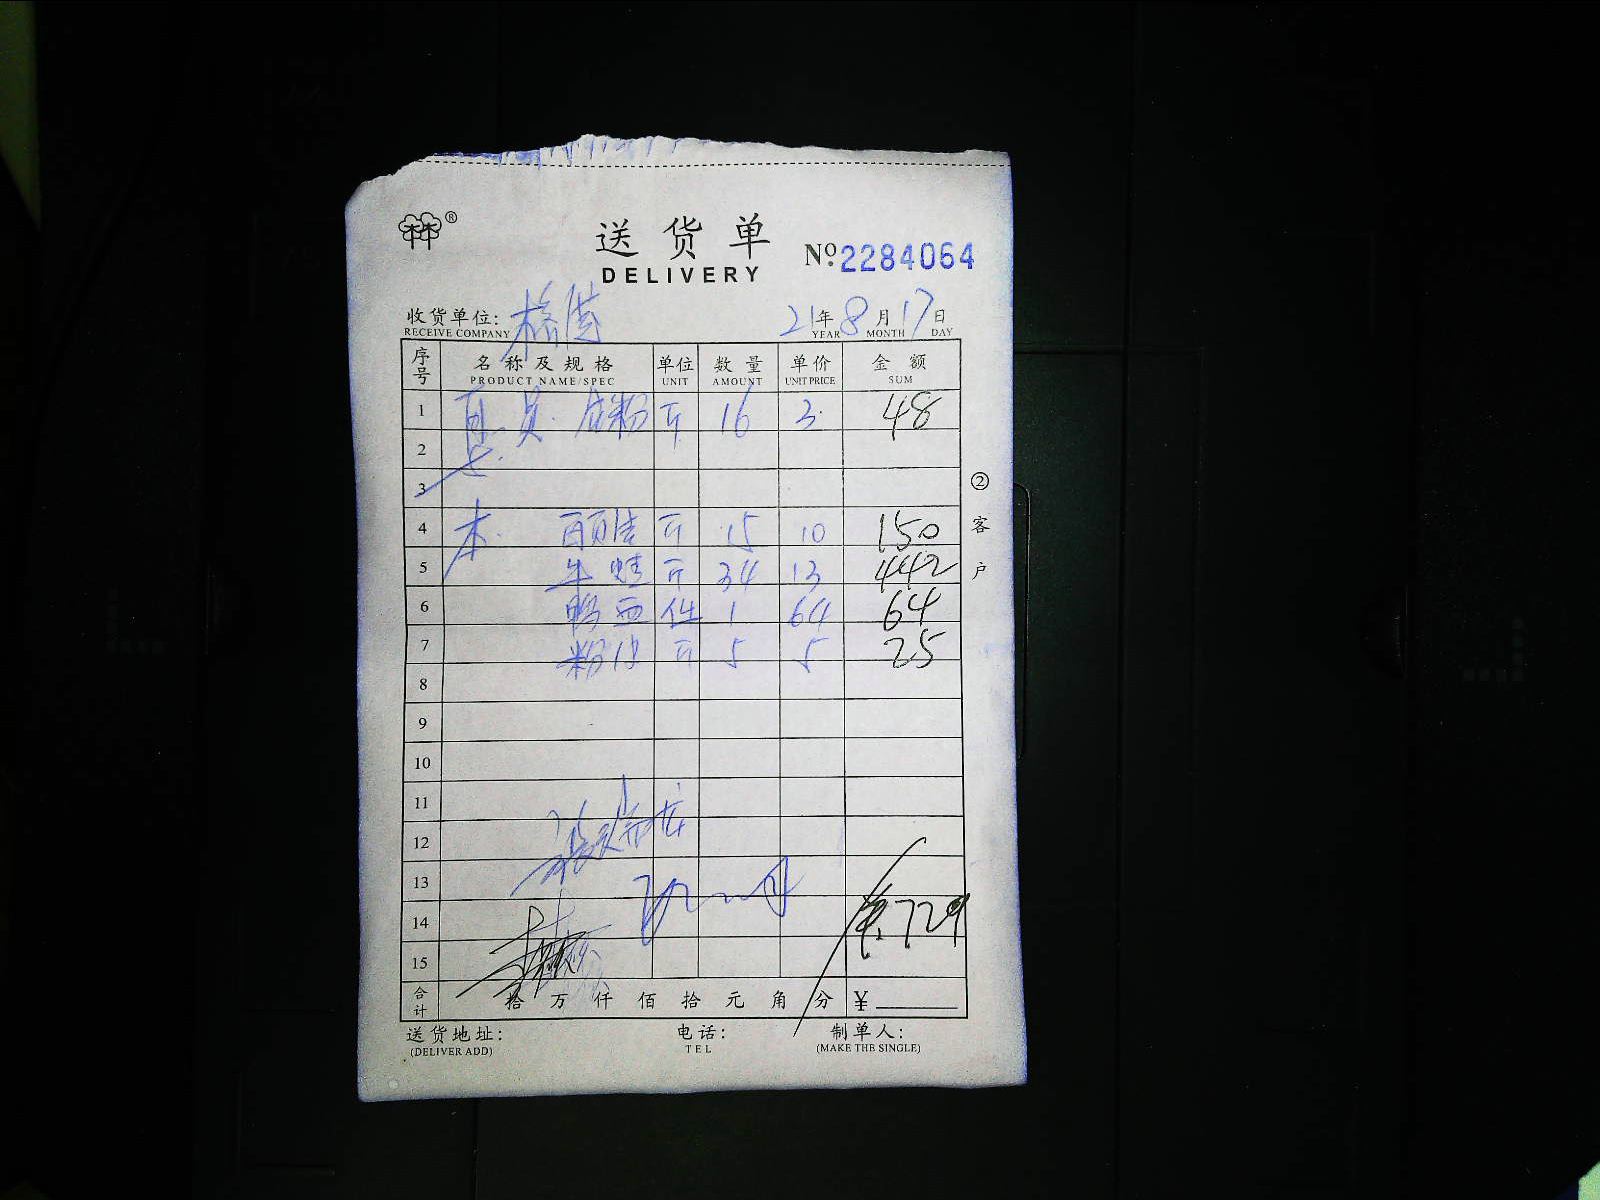 ®
送货单
DELIVERY
№ 2284064
收货单位:
RECEIVE COMPANY
21年8月17日
YEAR MONTH DAY
序号 名称及规格 单位 数量 单价 金额
PRODUCT NAME/SPEC UNIT AMOUNT UNIT PRICE SUM
1 员.粉 斤 16 3. 48
2
3
4 本 斤 15 10 150
5 牛蛙 斤 34 13 442
6 鸭血 件 1 64 64
7 粉 斤 5 5 25
8
9
10
11
12
13
14 ¥.729
15
合计 拾万仟佰拾元角分 ¥
②客户
送货地址: 电话: 制单人:
(DELIVER ADD) TEL (MAKE THE SINGLE)